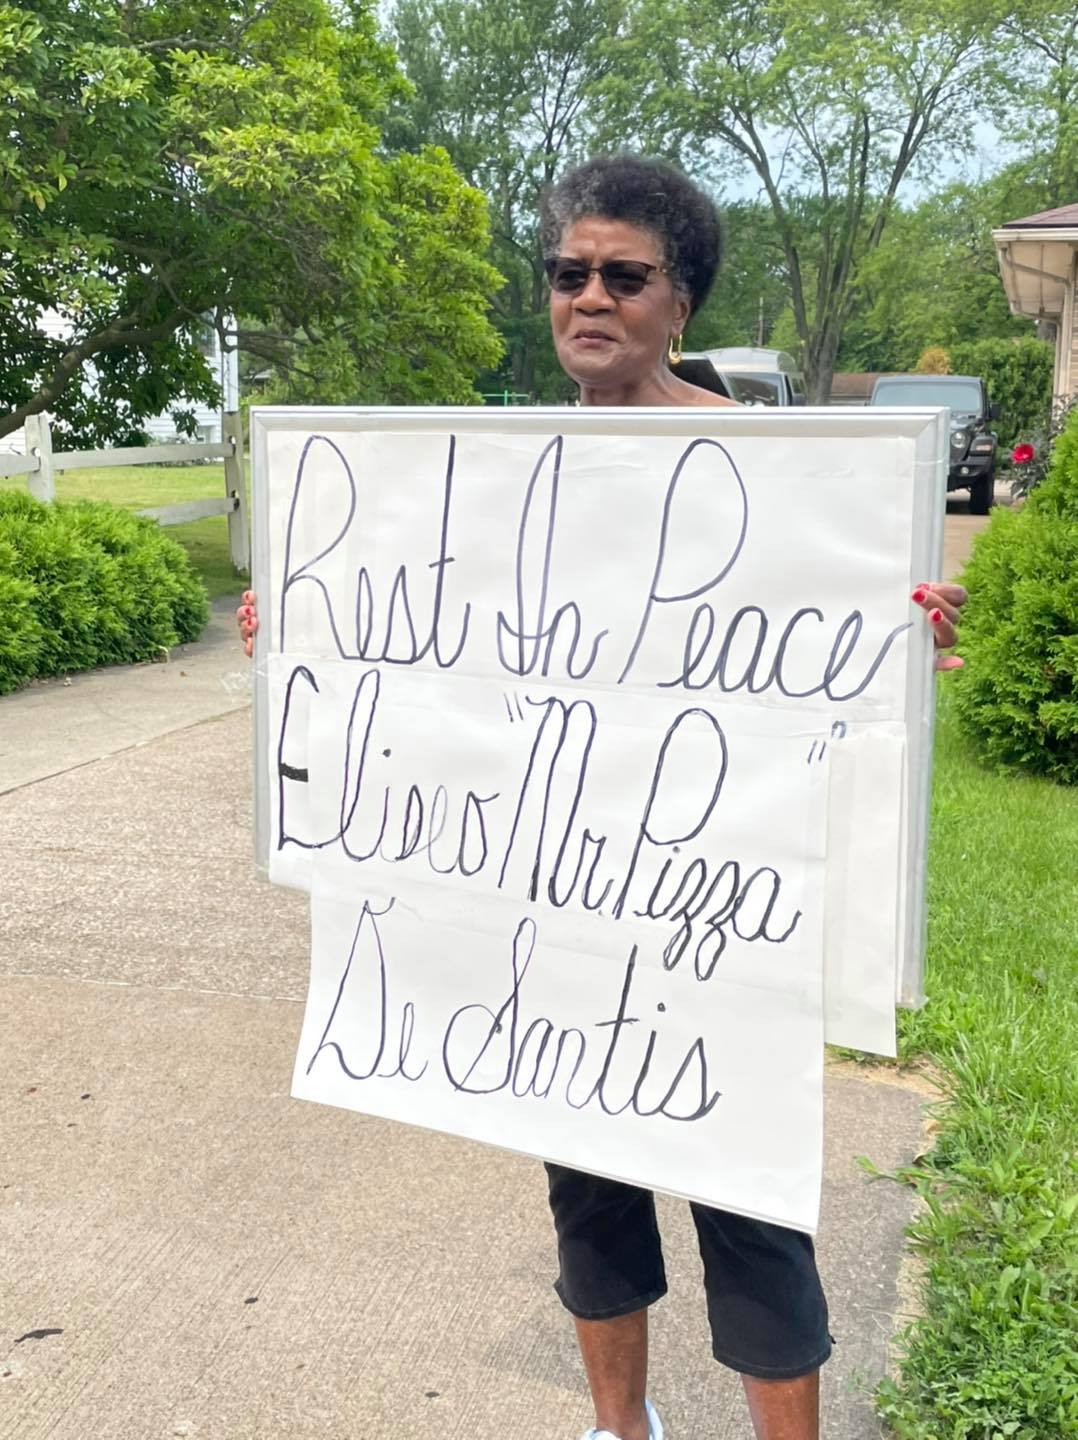 Rest In Peace
Eliseo "Mr. Pizza"
De Santis